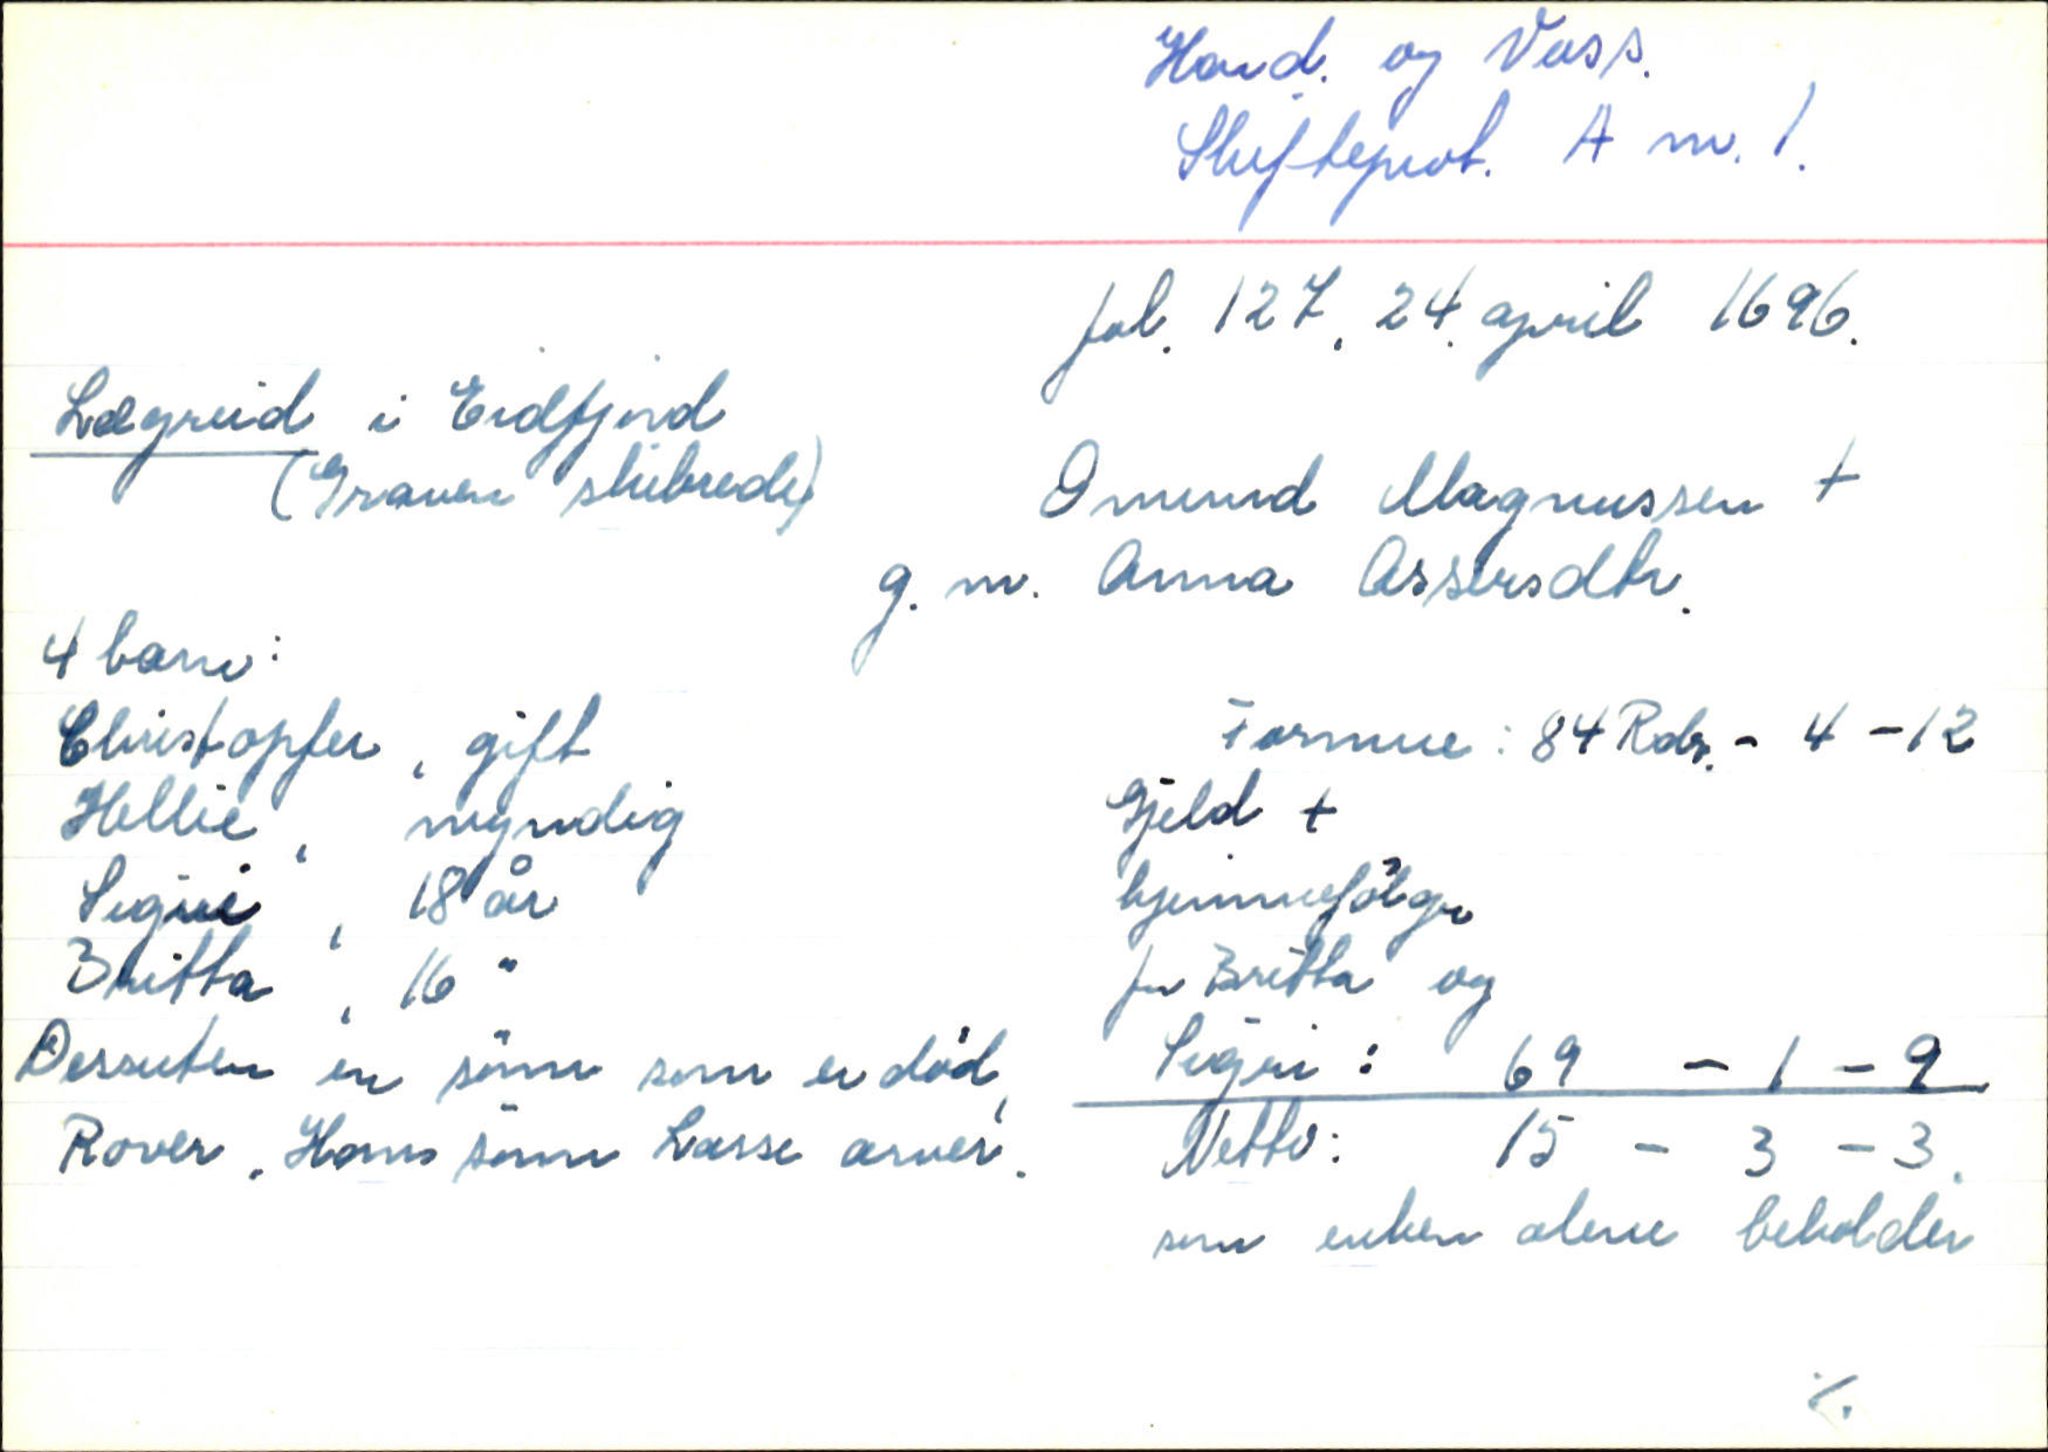 Hard. og Voss.
Skifteprot. A nr. 1.
fol. 127, 24. april 1696.
Lægreid i Eidfjord
(Graven skibrede)
Omund Magnussen +
g. m. Anna Assersdtr.
4 barn:
Christopfer, gift
Hellie, myndig
Sigri, 18 år
Britta, 16 "
Dessuten en sönn som er död,
Rover. Hans sönn Lasse arver.
Formue: 84 Rdr. - 4 - 12
Gjeld +
hjemmefölge
for Britta og
Sigri: 69 - 1 - 9
Netto: 15 - 3 - 3.
som enken alene beholder